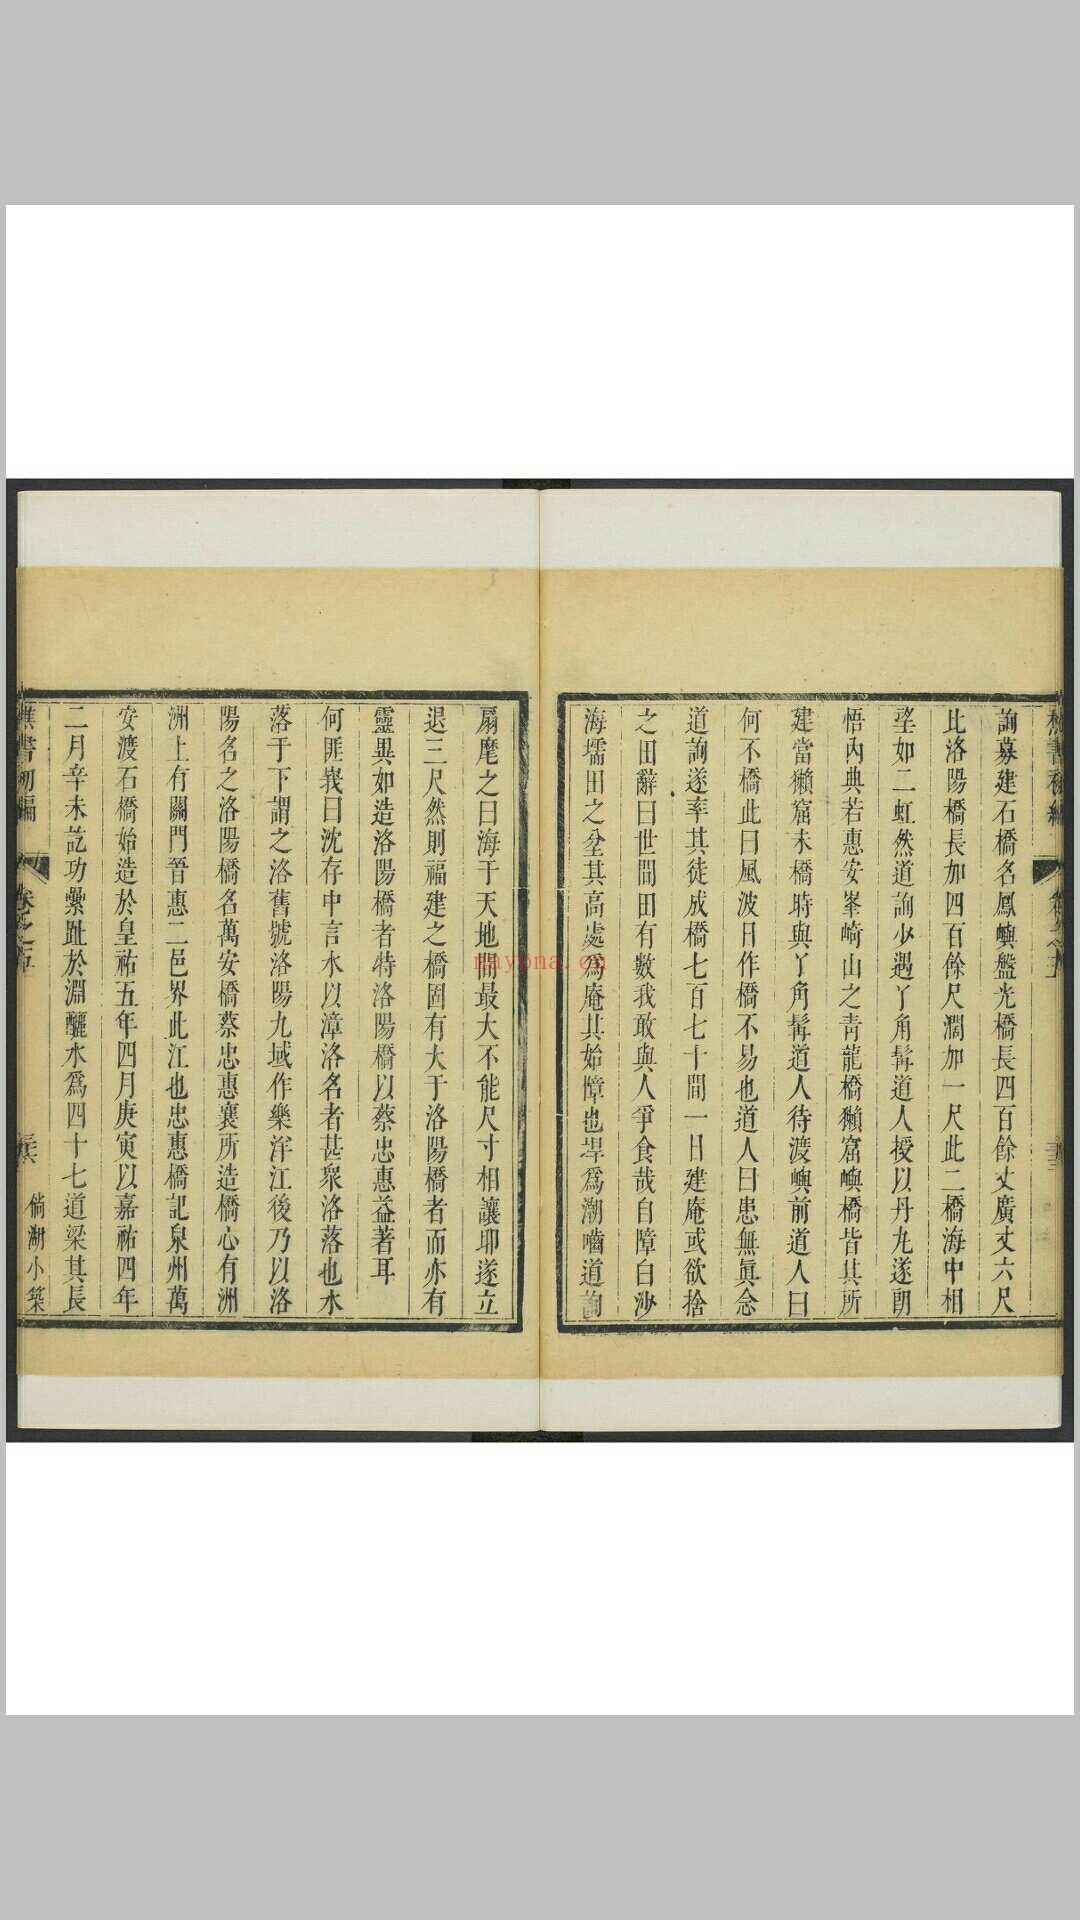 詢募建石橋名鳳嶼盤光橋長四百餘丈廣丈六尺
此洛陽橋長加四百餘尺濶加一尺此二橋海中相
望如二虹然道詢少遇丫角髯道人授以丹九遂朗
悟內典若惠安峯崎山之靑龍橋獺窟嶼橋皆其所
建當獺窟未橋時與丫角髯道人待渡嶼前道人曰
何不橋此曰風波日作橋不易也道人曰患無眞念
道詢遂率其徒成橋七百七十間一日建庵或欲捨
之田辭曰世間田有數我敢與人爭食哉自障白沙
海壖田之坌其高處爲庵其始障也堤爲潮嚙道詢
扇麾之曰海于天地間最大不能尺寸相讓耶遂立
退三尺然則福建之橋固有大于洛陽橋者而亦有
靈異如造洛陽橋者特洛陽橋以蔡忠惠益著耳
何匪莪曰沈存中言水以漳洛名者甚衆洛落也水
落于下謂之洛舊號洛陽九域作樂洋江後乃以洛
陽名之洛陽橋名萬安橋蔡忠惠襄所造橋心有洲
洲上有關門晉惠二邑界此江也忠惠橋記泉州萬
安渡石橋始造於皇祐五年四月庚寅以嘉祐四年
二月辛未訖功纍趾於淵釃水爲四十七道梁其長
樵書初編
卷之五
倘湖小築
nayona.cn